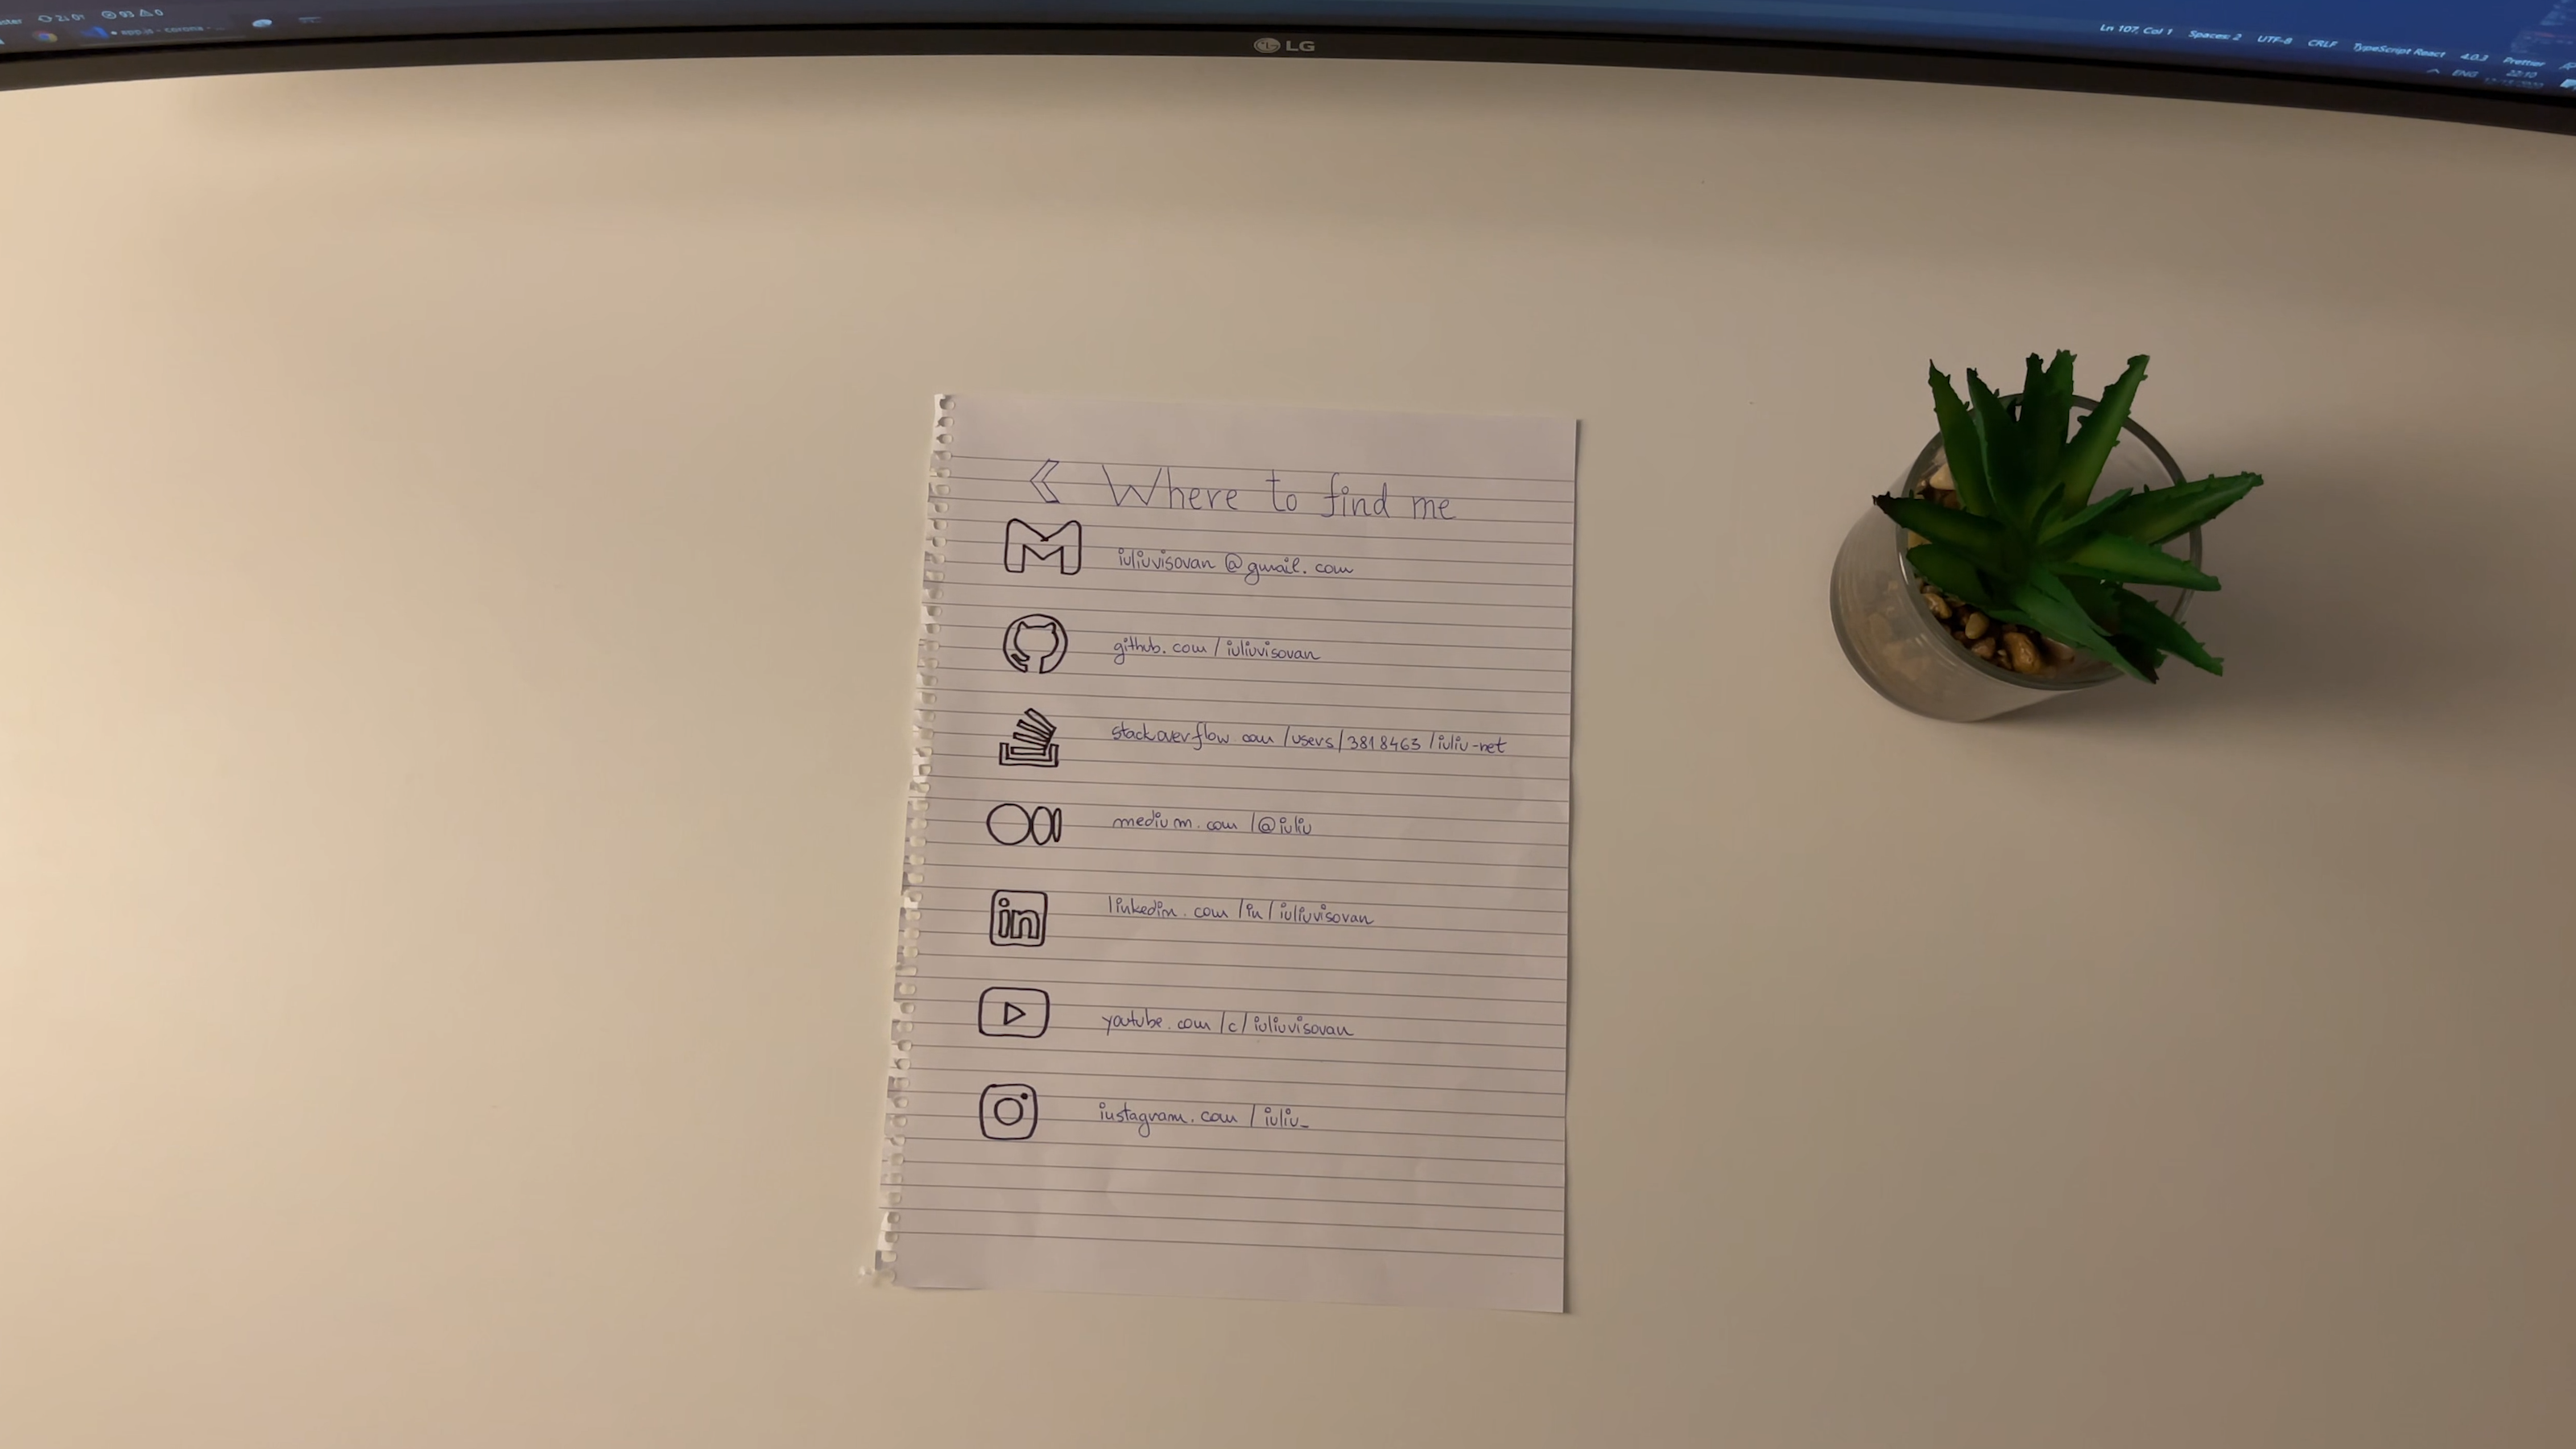 2↓ 0↑ 93 0
app.js - corona - ...
LG
Ln 107, Col 1 Spaces: 2 UTF-8 CRLF TypeScript React 4.0.3 Prettier
ENG 22:10
Where to find me
iuliuvisovan@gmail.com
github.com/iuliuvisovan
stackoverflow.com/users/3818463/iuliu-net
medium.com/@iuliu
in
linkedin.com/in/iuliuvisovan
youtube.com/c/iuliuvisovan
instagram.com/iuliu_